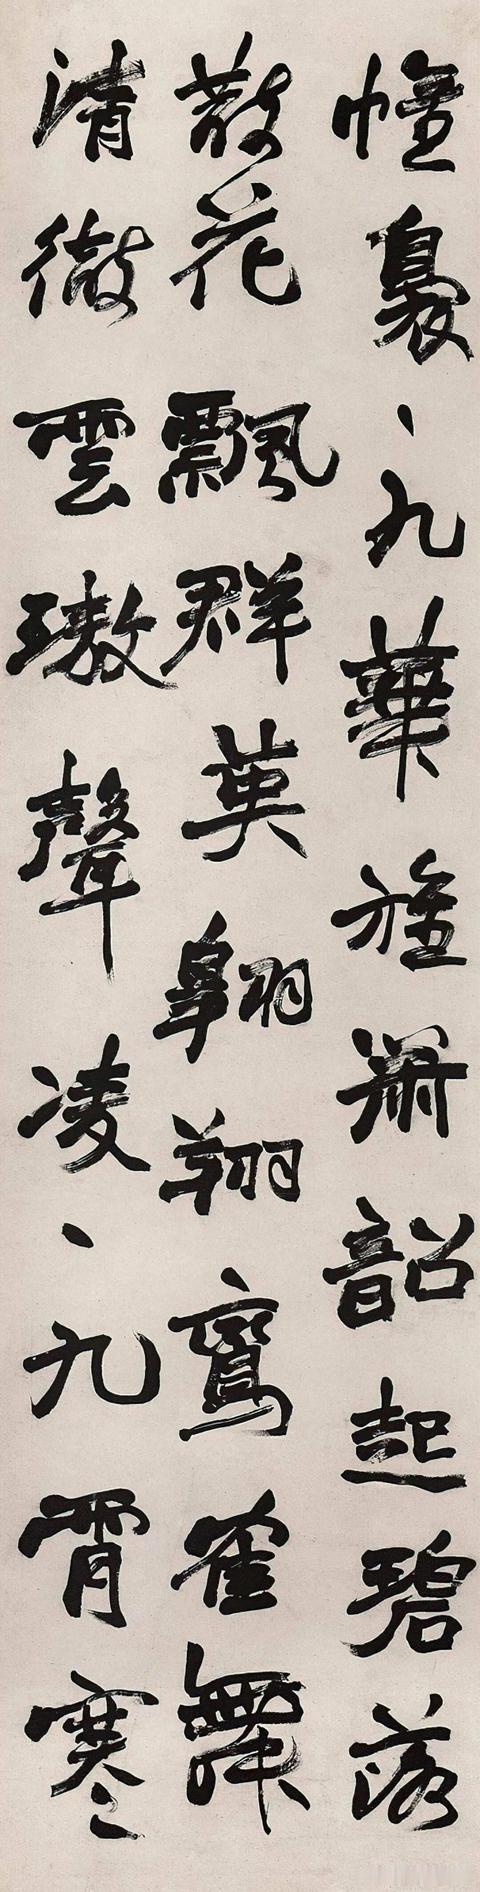 幢裊、九華旌簫韶起碧落
散花飄群英翱翔鸞雀舞
清徹雲璈聲凌、九霄寒